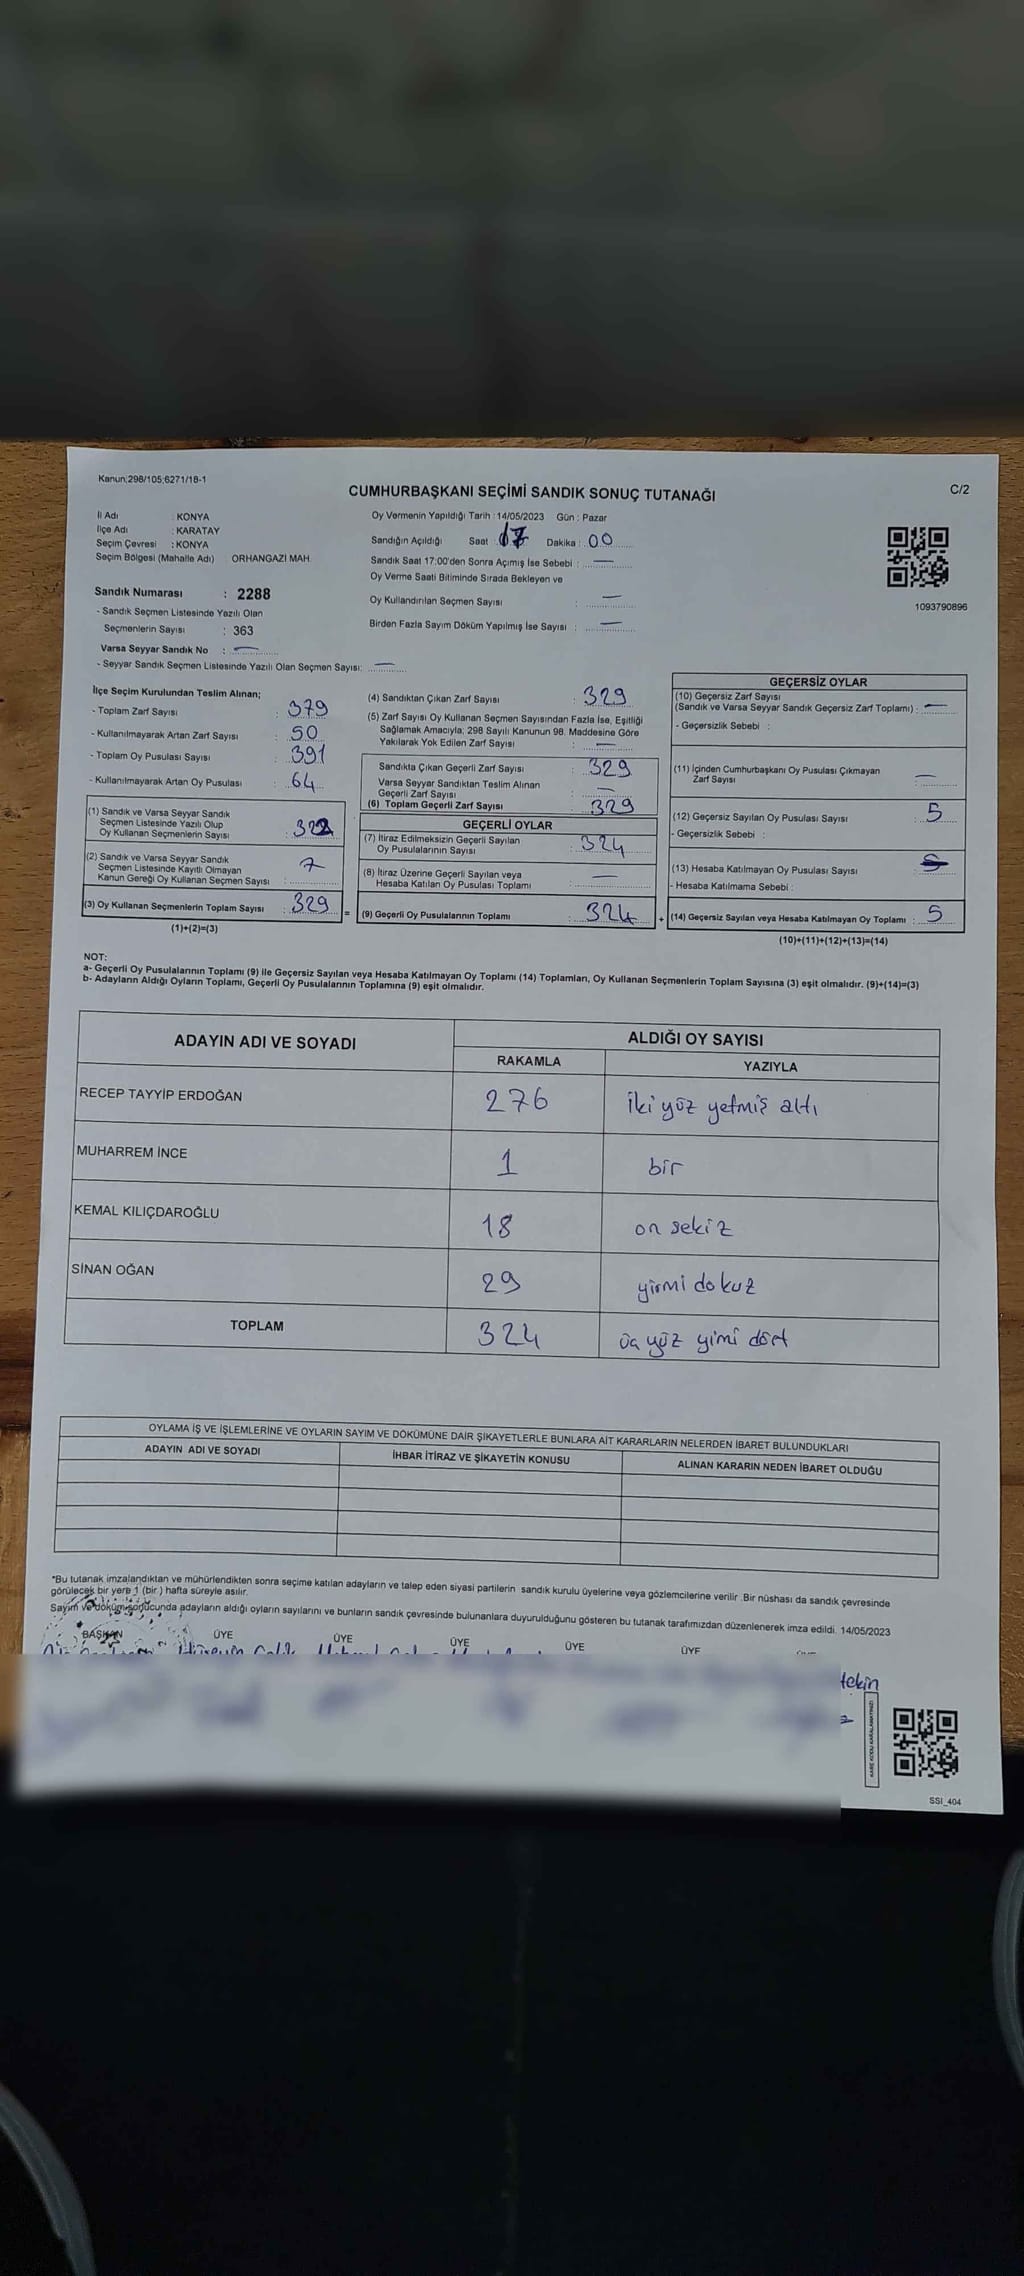 Kanun;298/105;6271/18-1
CUMHURBAŞKANI SEÇİMİ SANDIK SONUÇ TUTANAĞI
C/2
İl Adı : KONYA
İlçe Adı : KARATAY
Seçim Çevresi : KONYA
Seçim Bölgesi (Mahalle Adı) ORHANGAZİ MAH.
Sandık Numarası : 2288
- Sandık Seçmen Listesinde Yazılı Olan
Seçmenlerin Sayısı : 363
Varsa Seyyar Sandık No : —
- Seyyar Sandık Seçmen Listesinde Yazılı Olan Seçmen Sayısı: —
Oy Vermenin Yapıldığı Tarih : 14/05/2023 Gün : Pazar
Sandığın Açıldığı Saat : 17 Dakika : 00
Sandık Saat 17:00'den Sonra Açımış İse Sebebi : —
Oy Verme Saati Bitiminde Sırada Bekleyen ve
Oy Kullandırılan Seçmen Sayısı : —
Birden Fazla Sayım Döküm Yapılmış İse Sayısı : —
1093790896
İlçe Seçim Kurulundan Teslim Alınan;
- Toplam Zarf Sayısı : 379
- Kullanılmayarak Artan Zarf Sayısı : 50
- Toplam Oy Pusulası Sayısı : 391
- Kullanılmayarak Artan Oy Pusulası : 64
(1) Sandık ve Varsa Seyyar Sandık
Seçmen Listesinde Yazılı Olup
Oy Kullanan Seçmenlerin Sayısı : 322
(2) Sandık ve Varsa Seyyar Sandık
Seçmen Listesinde Kayıtlı Olmayan
Kanun Gereği Oy Kullanan Seçmen Sayısı : 7
(3) Oy Kullanan Seçmenlerin Toplam Sayısı : 329
(1)+(2)=(3)
(4) Sandıktan Çıkan Zarf Sayısı : 329
(5) Zarf Sayısı Oy Kullanan Seçmen Sayısından Fazla İse, Eşitliği
Sağlamak Amacıyla; 298 Sayılı Kanunun 98. Maddesine Göre
Yakılarak Yok Edilen Zarf Sayısı : —
Sandıkta Çıkan Geçerli Zarf Sayısı : 329
Varsa Seyyar Sandıktan Teslim Alınan
Geçerli Zarf Sayısı : —
(6) Toplam Geçerli Zarf Sayısı : 329
GEÇERLİ OYLAR
(7) İtiraz Edilmeksizin Geçerli Sayılan
Oy Pusulalarının Sayısı : 324
(8) İtiraz Üzerine Geçerli Sayılan veya
Hesaba Katılan Oy Pusulası Toplamı : —
= (9) Geçerli Oy Pusulalarının Toplamı : 324
GEÇERSİZ OYLAR
(10) Geçersiz Zarf Sayısı
(Sandık ve Varsa Seyyar Sandık Geçersiz Zarf Toplamı) : —
- Geçersizlik Sebebi :
(11) İçinden Cumhurbaşkanı Oy Pusulası Çıkmayan
Zarf Sayısı : —
(12) Geçersiz Sayılan Oy Pusulası Sayısı : 5
- Geçersizlik Sebebi :
(13) Hesaba Katılmayan Oy Pusulası Sayısı : 5
- Hesaba Katılmama Sebebi :
+ (14) Geçersiz Sayılan veya Hesaba Katılmayan Oy Toplamı : 5
(10)+(11)+(12)+(13)=(14)
NOT:
a- Geçerli Oy Pusulalarının Toplamı (9) ile Geçersiz Sayılan veya Hesaba Katılmayan Oy Toplamı (14) Toplamları, Oy Kullanan Seçmenlerin Toplam Sayısına (3) eşit olmalıdır. (9)+(14)=(3)
b- Adayların Aldığı Oyların Toplamı, Geçerli Oy Pusulalarının Toplamına (9) eşit olmalıdır.
ADAYIN ADI VE SOYADI
ALDIĞI OY SAYISI
RAKAMLA YAZIYLA
RECEP TAYYİP ERDOĞAN 276 iki yüz yetmiş altı
MUHARREM İNCE 1 bir
KEMAL KILIÇDAROĞLU 18 on sekiz
SİNAN OĞAN 29 yirmi dokuz
TOPLAM 324 üç yüz yimi dört
OYLAMA İŞ VE İŞLEMLERİNE VE OYLARIN SAYIM VE DÖKÜMÜNE DAİR ŞİKAYETLERLE BUNLARA AİT KARARLARIN NELERDEN İBARET BULUNDUKLARI
ADAYIN ADI VE SOYADI İHBAR İTİRAZ VE ŞİKAYETİN KONUSU ALINAN KARARIN NEDEN İBARET OLDUĞU
*Bu tutanak imzalandıktan ve mühürlendikten sonra seçime katılan adayların ve talep eden siyasi partilerin sandık kurulu üyelerine veya gözlemcilerine verilir .Bir nüshası da sandık çevresinde
görülecek bir yere 1 (bir ) hafta süreyle asılır.
Sayım ve döküm sonucunda adayların aldığı oyların sayılarını ve bunların sandık çevresinde bulunanlara duyurulduğunu gösteren bu tutanak tarafımızdan düzenlenerek imza edildi. 14/05/2023
BAŞKAN ÜYE ÜYE ÜYE ÜYE ÜYE
tekin
KARE KODU KARALAMAYINIZ!
SSI_404